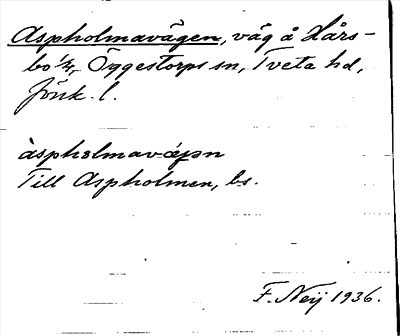 Aspholmavägen, väg å Hårs-
bo 1/4, Öggestorps sn, Tveta hd,
Jönk. l.
àspholmav-ägən
Till Aspholmen, bs.
F. Neij 1936.